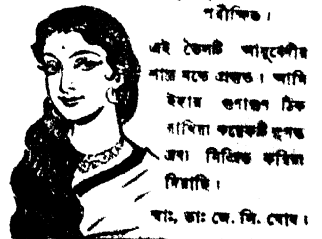 পরীক্ষিত।
এই তৈলটি আয়ুর্বেদীয়
শাস্ত্র মতে প্রস্তুত। আমি
ইহার গুণাগুণ ঠিক
রাখিয়া কয়েকটি সুগন্ধ
এবং মিশ্রিত করিয়া
দিয়াছি।
স্বাঃ, ডাঃ জে. সি. ঘোষ।